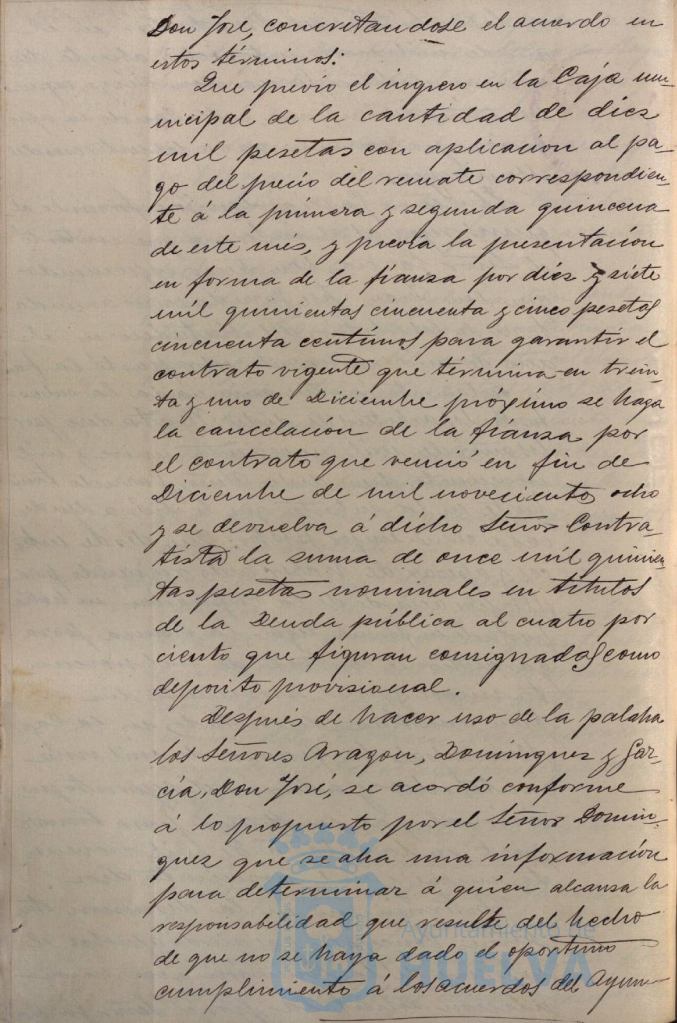 Don José, concretandose el acuerdo en
estos términos:
Que previo el ingreso en la Caja mu-
nicipal de la cantidad de diez
mil pesetas con aplicacion al pa-
go del precio del remate correspondien-
te á la primera y segunda quincena
de este mes, y previa la presentación
en forma de la fianza por diez y siete
mil quinientas cincuenta y cinco pesetas
cincuenta centimos para garantir el
contrato vigente que términa en trein-
ta y uno de Diciembre próximo se haga
la cancelación de la fianza por
el contrato que venció en fin de
Diciembre de mil novecientos ocho
y se devuelva á dicho Señor Contra-
tista la suma de once mil quinien-
tas pesetas nominales en titulos
de la Deuda pública al cuatro por
ciento que figuran consignadas como
deposito provisional.
Después de hacer uso de la palabra
los Señores Aragon, Dominguez y Gar-
cía, Don José, se acordó conforme
á lo propuesto por el Señor Domin-
guez que se aha una información
para determinar á quien alcansa la
responsabilidad que resulte del hecho
de que no se haya dado el oportuno
cumplimiento á los acuerdos del Ayun-
Ayuntamiento de
HUELVA